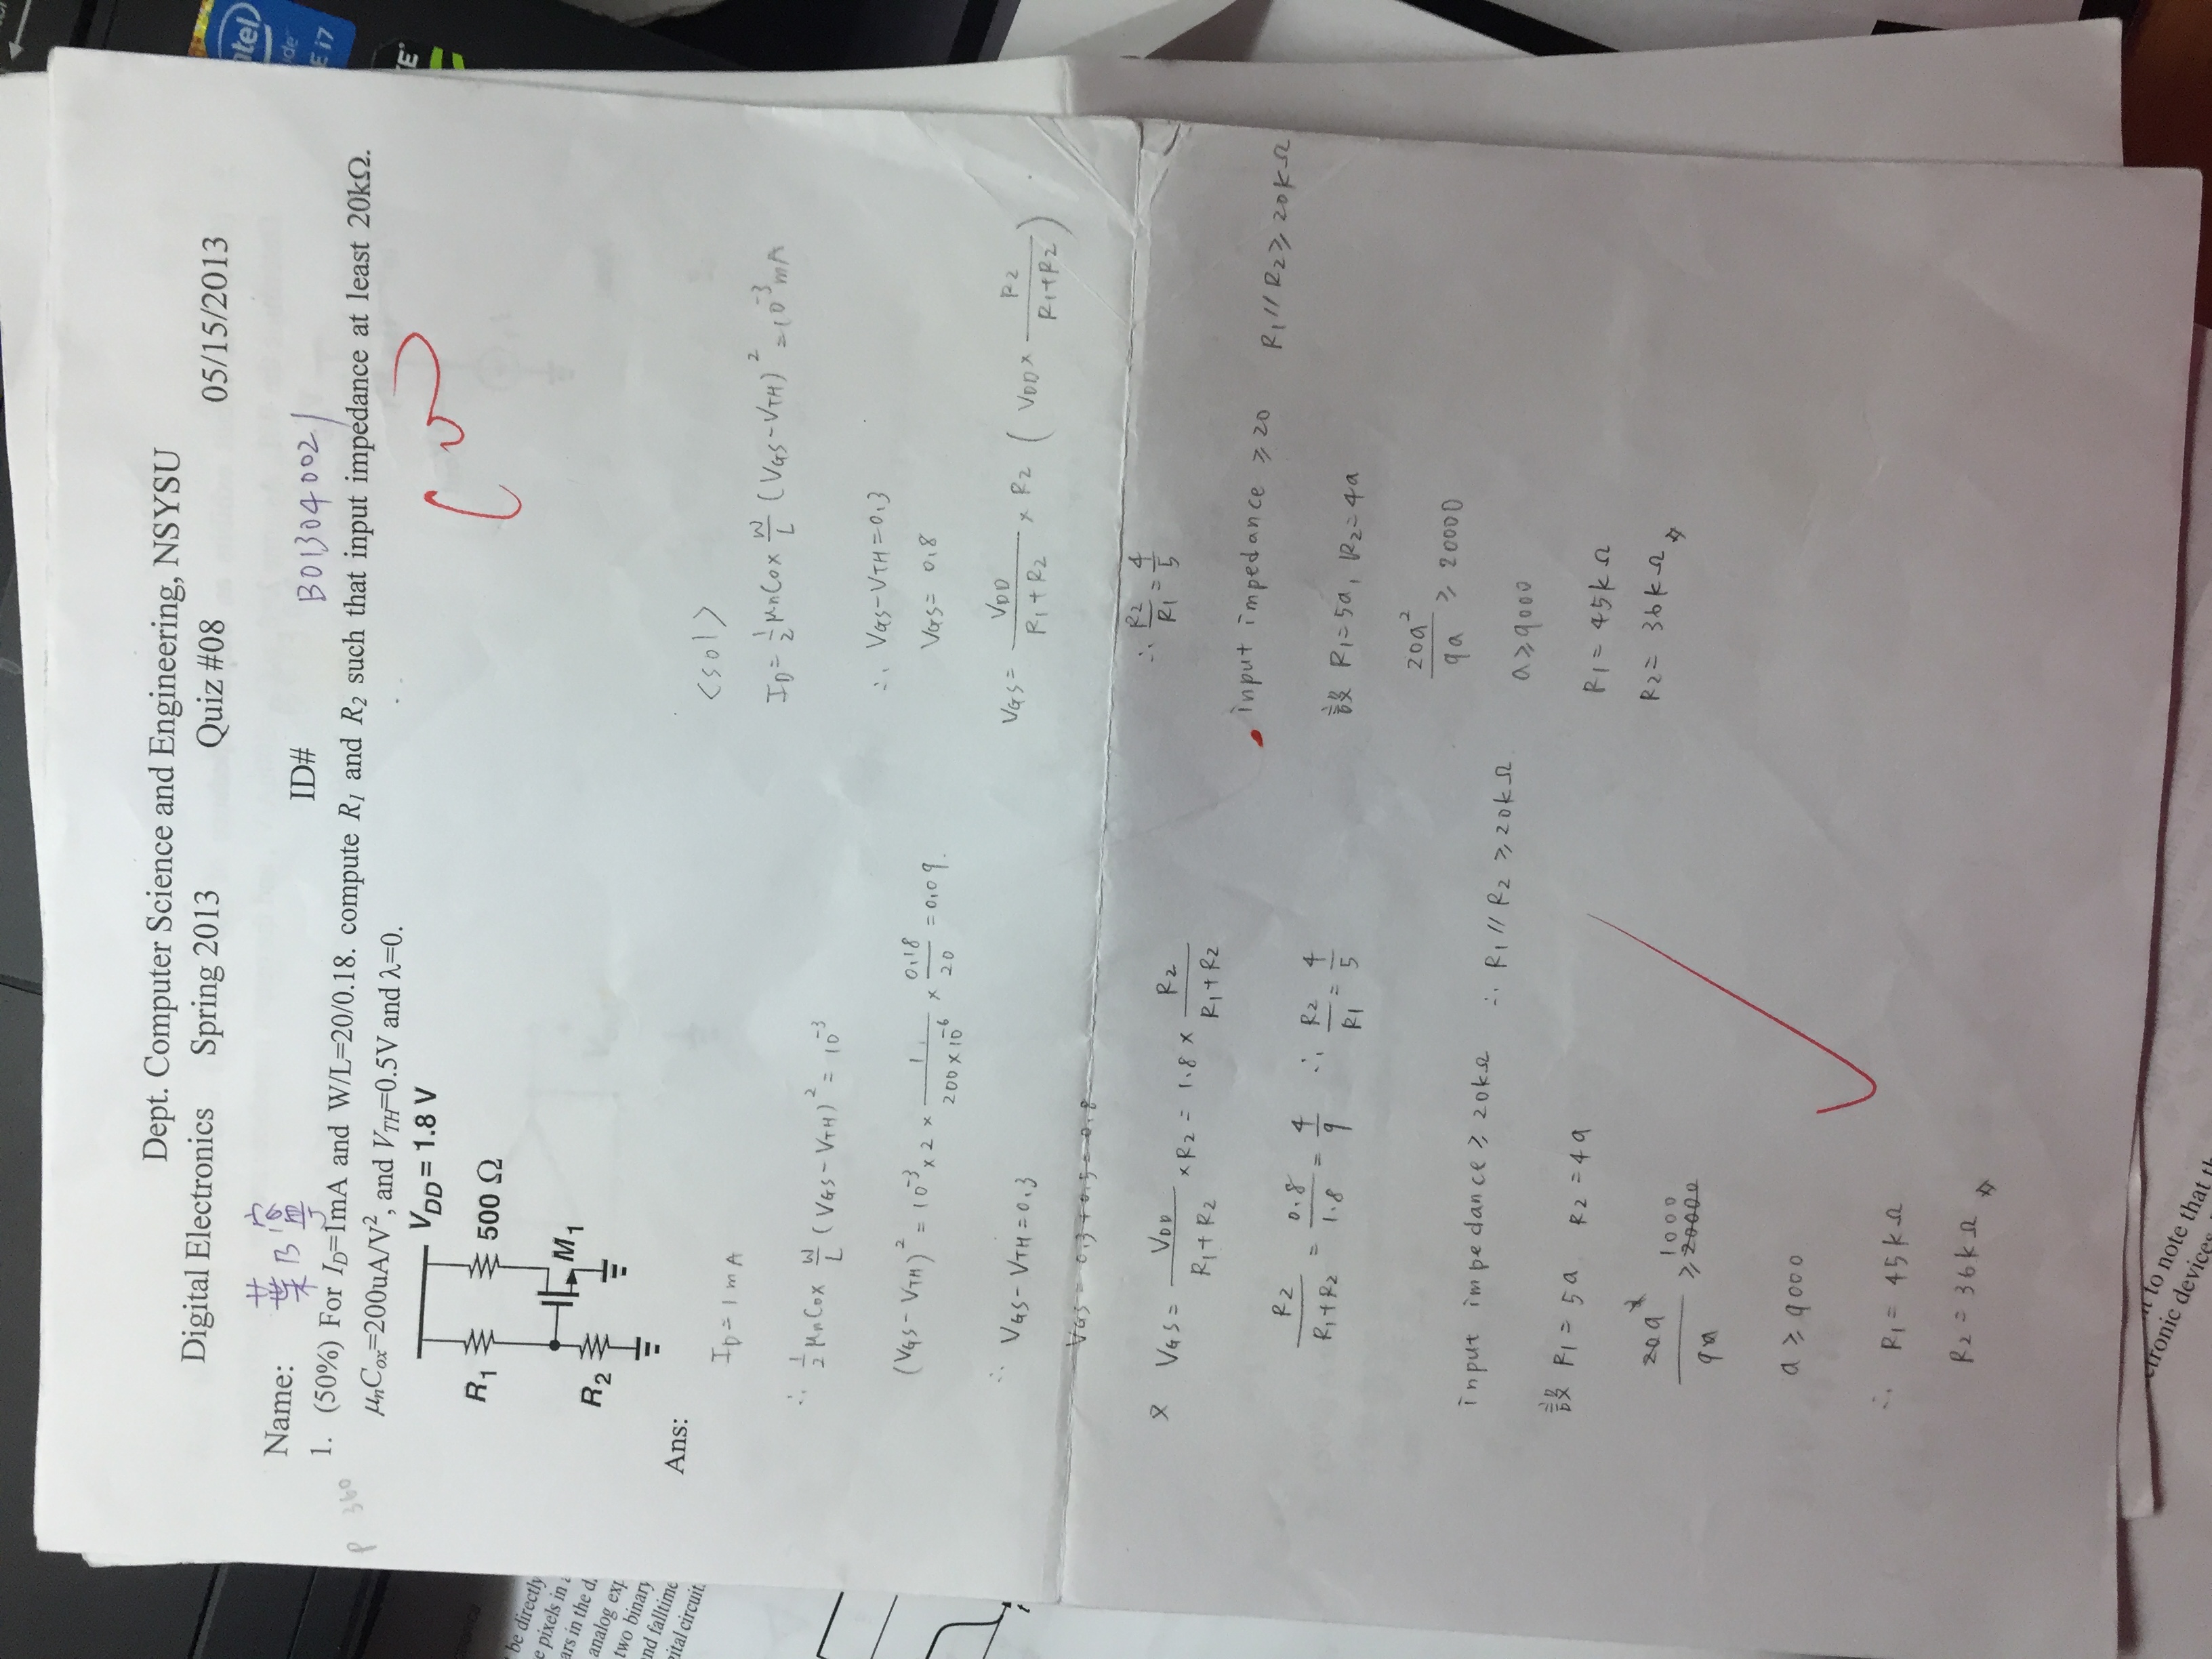 Dept. Computer Science and Engineering, NSYSU
Digital Electronics Spring 2013 Quiz #08 05/15/2013
Name: 葉乃甯 ID# B013040021
P 360
1. (50%) For ID=1mA and W/L=20/0.18. compute R1 and R2 such that input impedance at least 20kΩ.
μnCox=200uA/V², and VTH=0.5V and λ=0.
VDD = 1.8 V
R1
500 Ω
M1
R2
Ans:
ID = 1mA
∴ 1/2 μnCox W/L (VGS-VTH)² = 10⁻³
(VGS-VTH)² = 10⁻³ × 2 × 1/(200×10⁻⁶) × 0.18/20 = 0.09.
∴ VGS-VTH = 0.3
VGS = 0.3+0.5 = 0.8
× VGS = VDD/(R1+R2) × R2 = 1.8 × R2/(R1+R2)
R2/(R1+R2) = 0.8/1.8 = 4/9 ∴ R2/R1 = 4/5
input impedance ≥ 20kΩ ∴ R1 // R2 ≥ 20kΩ
設 R1 = 5a R2 = 4a
20a²/9a ≥ 20000 1000
a ≥ 9000
∴ R1 = 45kΩ
R2 = 36kΩ
<sol>
ID = 1/2 μnCox W/L (VGS-VTH)² = 10⁻³mA
∴ VGS-VTH = 0.3
VGS = 0.8
VGS = VDD/(R1+R2) × R2 (VDD × R2/(R1+R2))
∴ R2/R1 = 4/5
input impedance ≥ 20 R1 // R2 ≥ 20kΩ
設 R1 = 5a, R2 = 4a
20a²/9a ≥ 20000
a ≥ 9000
R1 = 45kΩ
R2 = 36kΩ
be directly
e pixels in
ars in the d
analog exp
two binary
nd falltime
gital circuit.
t
ntel
i7
to note that th
ctronic devices